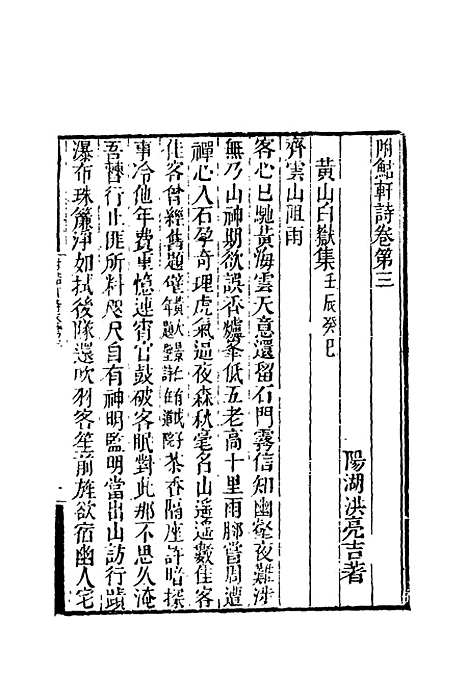 附鮚軒詩卷第三
陽湖洪亮吉著
黃山白嶽集壬辰癸巳
齊雲山阻雨
客心已馳黃海雲天意還留石門霧信知幽壑夜難涉
無乃山神期欲誤香爐峯低五老高十里雨脚嘗周遭
禪心入石孕奇理虎氣逼夜森秋毫名山遙遙數佳客
佳客曾經舊題壁茶香隔座許暗探
事冷他年費重憶連宵官鼓破客眠對此那不思久淹
吾曹行止匪所料咫尺自有神明監明當出山訪行蹟
瀑布珠簾淨如拭後隊還吹羽客笙前旌欲宿幽人宅